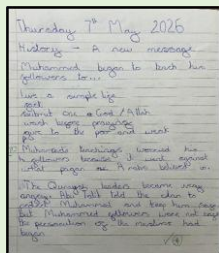 Thursday 7th May 2026
History - A new message
Muhammed began to teach his
followers to...
live a simple life
submit one God / Allah
wash before praying
give to the poor and
Muhammads teachings worried the
followers because it went against
what Arabs believed
The Quraysh leaders became very
angry. Abu Talib told the clan to
protect Muhammad and keep him safe
but Muhammed followers were not safe
the persecution of the muslims had
begun